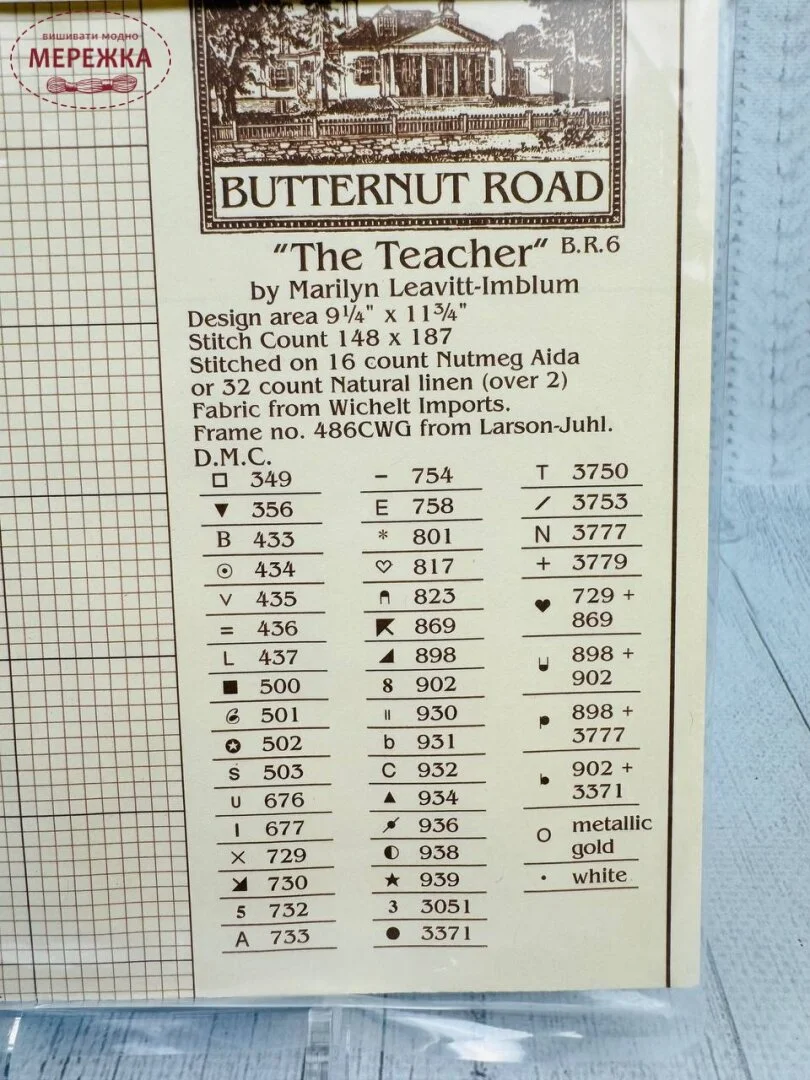 вишивати модно
МЕРЕЖКА
BUTTERNUT ROAD
"The Teacher" B.R.6
by Marilyn Leavitt-Imblum
Design area 9¼" x 11¾"
Stitch Count 148 x 187
Stitched on 16 count Nutmeg Aida
or 32 count Natural linen (over 2)
Fabric from Wichelt Imports.
Frame no. 486CWG from Larson-Juhl.
D.M.C.
□ 349
▼ 356
B 433
⊙ 434
V 435
= 436
L 437
■ 500
501
✪ 502
S 503
U 676
I 677
X 729
730
5 732
A 733
– 754
E 758
* 801
♡ 817
823
869
◢ 898
8 902
॥ 930
b 931
C 932
▲ 934
936
◐ 938
★ 939
3 3051
● 3371
T 3750
/ 3753
N 3777
+ 3779
♥ 729 +
869
898 +
902
898 +
3777
902 +
3371
O metallic
gold
· white